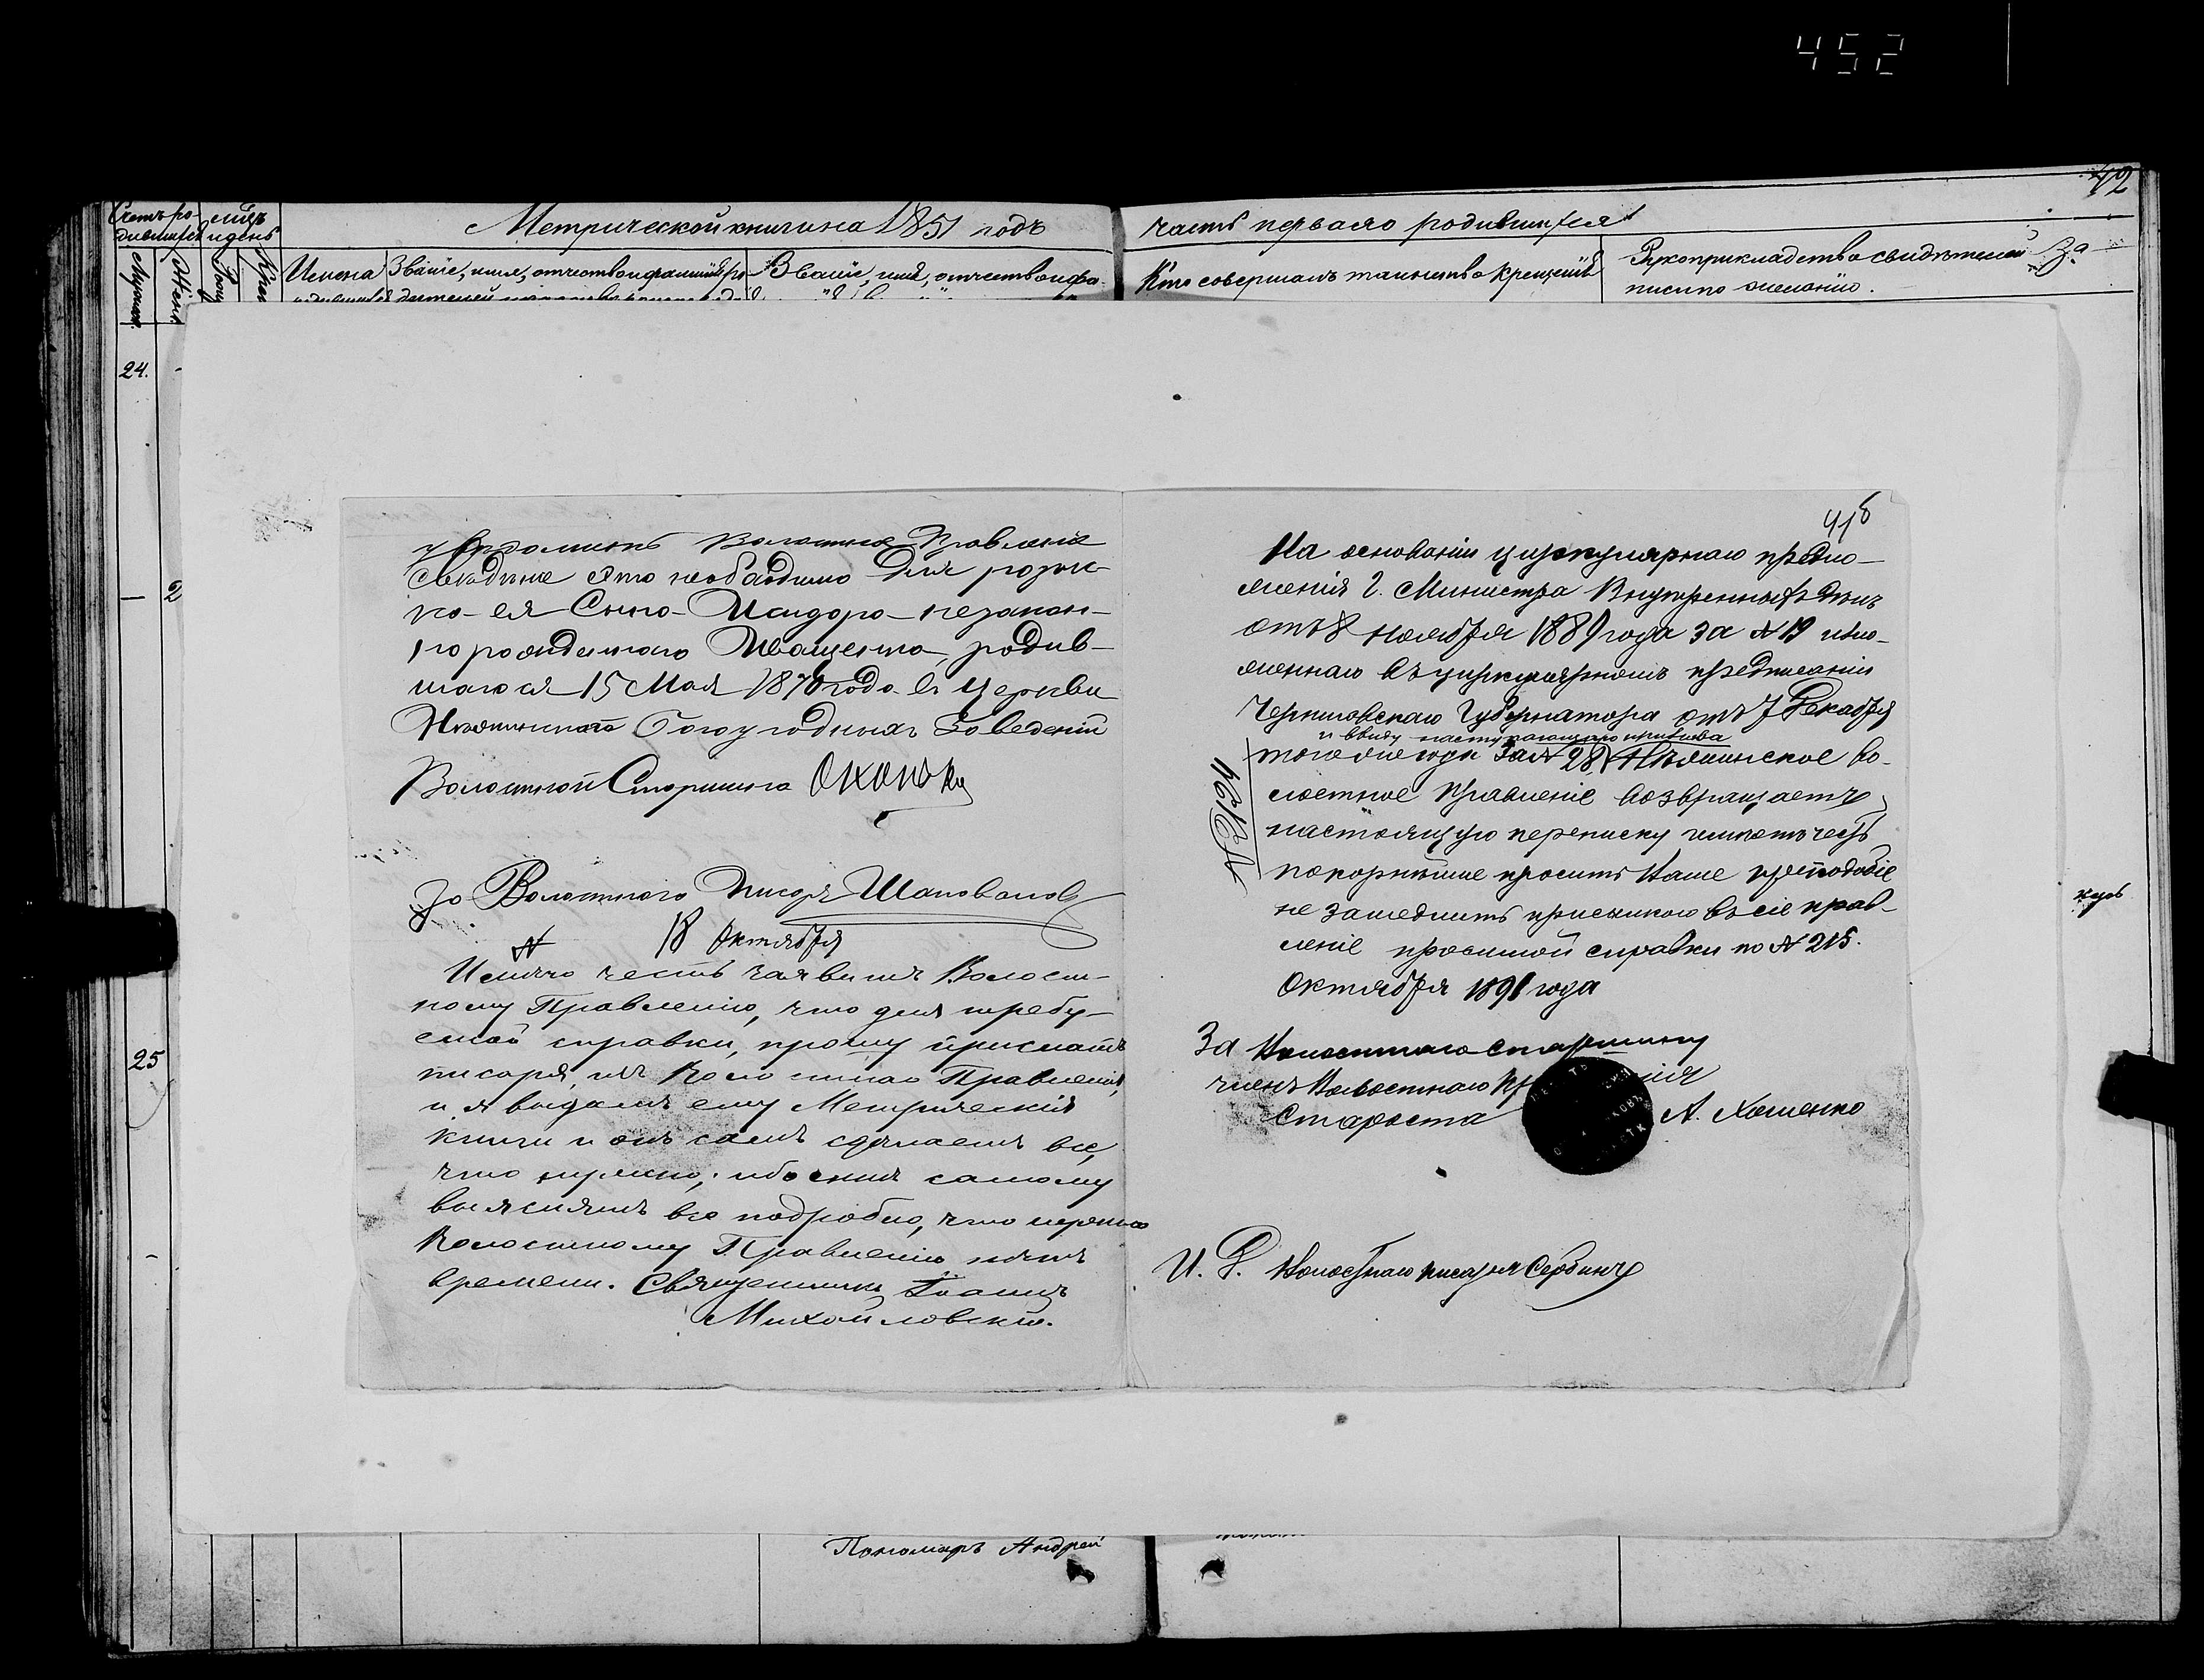 452
42
Счетъ ро-
дившихся
мѣсяцъ
и день
Метрической книги на 1851 годъ
часть первая о родившихся
Имена
Званіе, имя, отчество и фамилія ро-
Званіе, имя, отчество и фа-
Кто совершалъ таинство крещенія
Рукоприкладство свидѣтелей за-
писи по желанію.
24.
2
25
увѣдомить Волостное Правленіе
Свѣдѣніе это необходимо для розыс-
ка ея Сына Исидора незакон-
норожденнаго Иващенко, родив-
шагося 15 Мая 1870 года въ Церкви
Богоугодныхъ Заведеній
Волостной Старшина
За Волостного Писаря Шаповаловъ
№ 18 Октября
Имѣю честь заявить Волост-
ному Правленію, что для требу-
емой справки, прошу прислать
писаря, изъ Волостнаго Правленія,
и я выдамъ ему Метрическія
книги и онъ самъ сдѣлаетъ все,
что нужно; ибо мнѣ самому
выяснять все подробно, что нужно
Волостному Правленію нѣтъ
времени. Священникъ Іоаннъ
Михайловскій.
41б
На основаніи циркулярнаго предло-
женія Г. Министра Внутреннихъ дѣлъ
отъ 8 Ноября 1889 года за № 19 изло-
женнаго въ циркулярномъ предписаніи
Черниговскаго Губернатора отъ 7 Декабря
и ввиду наступающаго призыва
того же года за № 28, Нѣжинское Во-
лостное Правленіе возвращаетъ
настоящую переписку имѣетъ честь
покорнѣйше просить Ваше преподобіе
не замедлить присылкою въ сіе прав-
леніе просимой справки по № 215.
Октября 1891 года
За Волостнаго Старшину
членъ Волостнаго
Староста А. Хоменко
И. Д. Волостнаго писаря Сербинъ
Пономарь Андрей